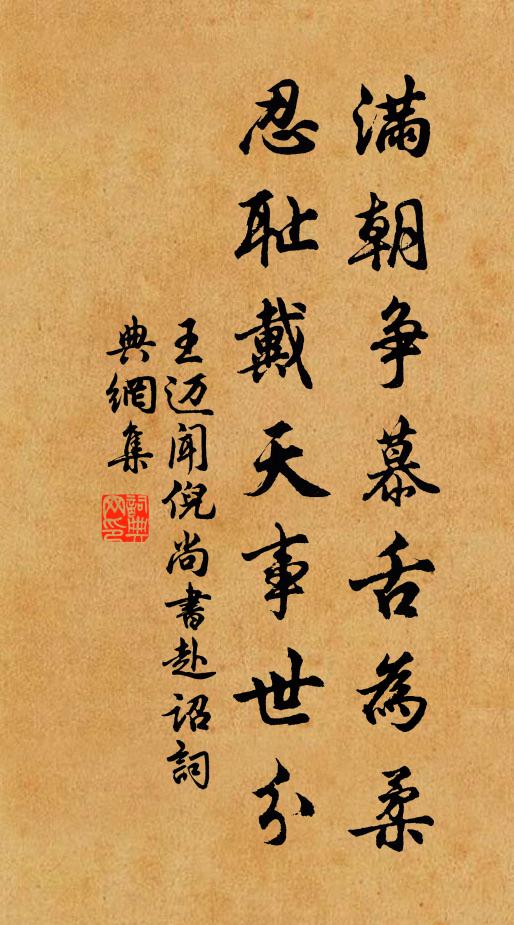 满朝争慕舌為柔
忍耻戴天事世分
王迈闻倪尚書赴诏詞
典網集
詞典網印